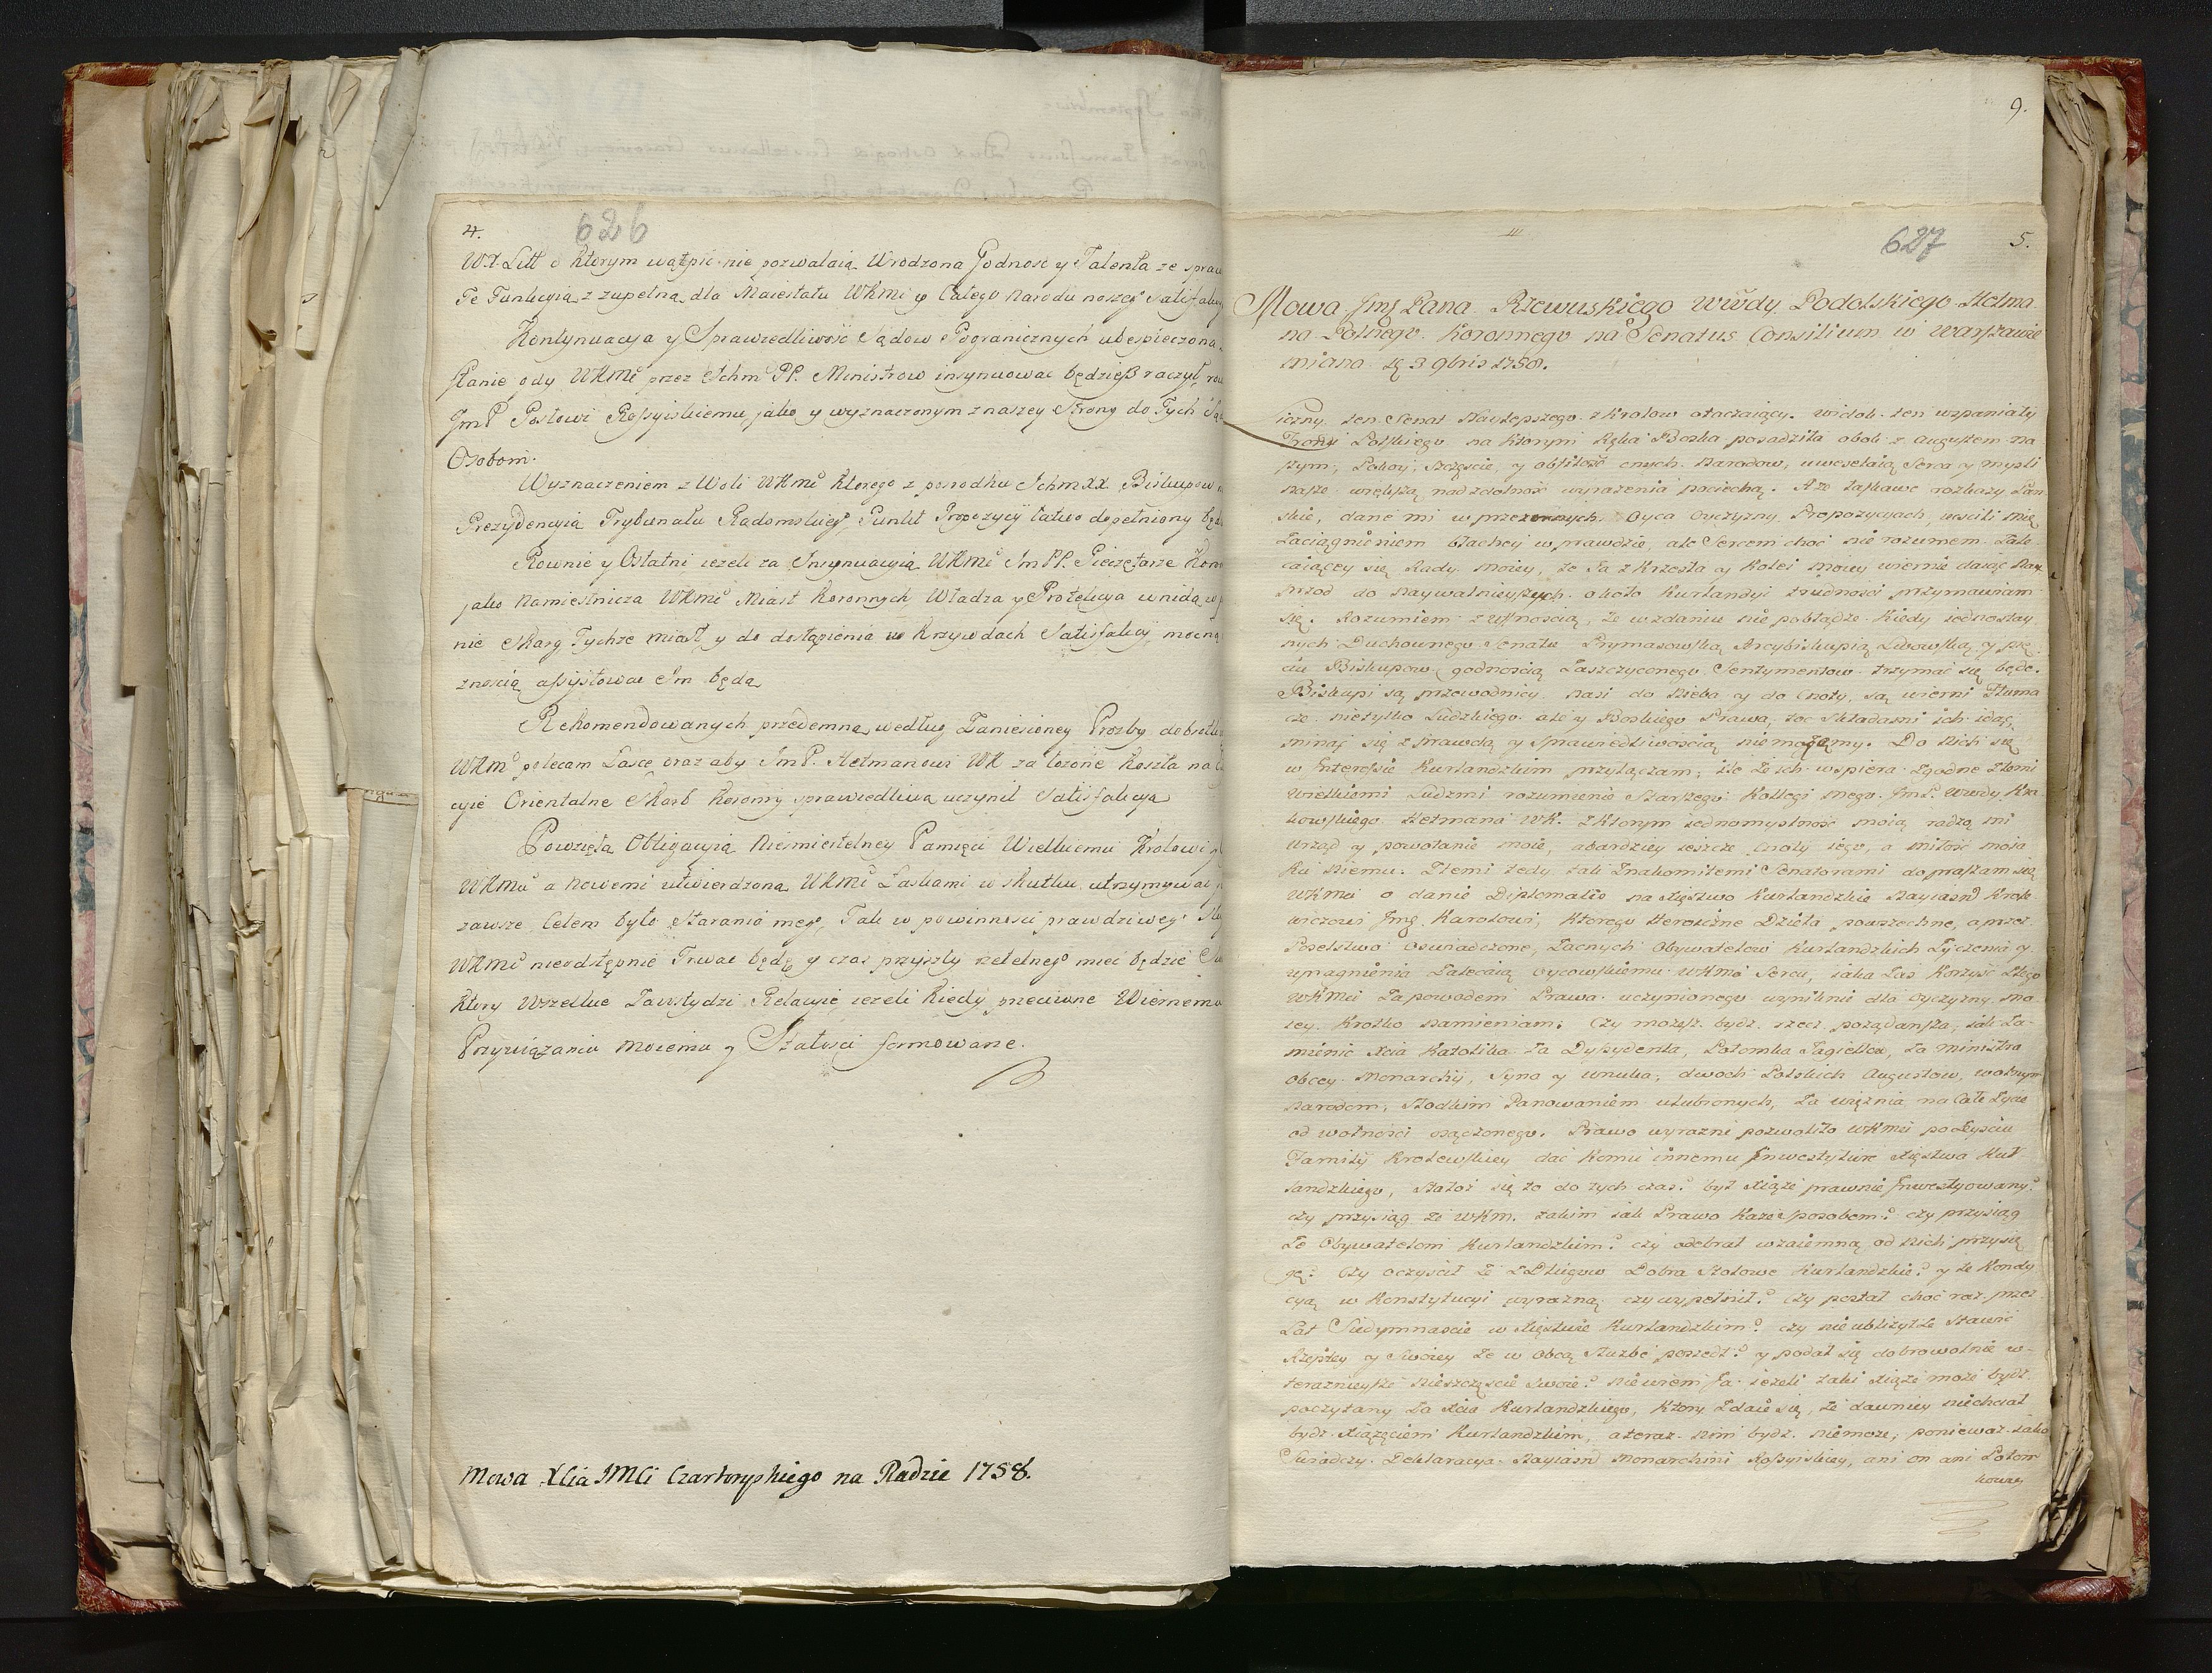 4.
626
W.X. Litt o ktorym wątpić nie pozwalaią Urodzona Godność y Talenta ze spraw
Te Funkcyią z zupełną dla Maiestatu WKMci y Całego Narodu naszego Satisfakcyą
Kontynuacya y Sprawiedliwość Sądow Pogranicznych ubespieczona
stanie gdy WKMć przez Ichm PP. Ministrow insynuować będziesz raczył
JmP Posłowi Rossyiskiemu, jako y wyznaczonym z naszey Strony do Tych
Osobom.
Wyznaczeniem z Woli WKMci ktorego z posrodku Ichm XX. Biskupow
Prezydencyią Trybunału Radomskiego, Punkt Propozycyi łatwo dopełniony
Rownie y Ostatni ieżeli za Insynuacyią WKMci Im PP. Pieczętarze
jako Namiestnicza WKMci Miast Koronnych Władza y Protekcya wnidą
nie Skarg Tychże miast, y do dostąpienia w Krzywdach Satisfakcyi mocną
znością assystować Im będą
Rekomendowanych przedemną według Zaniesioney Prozby
WKmci polecam Łasce oraz aby JmP. Hetmanowi WK za łożone Koszta na
cyie Orientalne Skarb Koronny sprawiedliwą uczynił Satisfakcyą
Powzięta Obligacyią Niesmiertelney Pamięci Wielkiemu Krolowi
WKMci a Nowemi utwierdzona WKMci Łaskami w skutku utrzymywać
zawsze Celem było Starania mego, Tak w powinności prawdziwego
WKMci nieodstępnie Trwać będę y czas przyszły rzetelnego mieć będzie
Ktory Wszelkie Zawstydzi Relacyie ieżeli kiedy przeciwne Wiernemu
Przywiązaniu Moiemu y Stałosci formowane.
Mowa XCia JMCi Czartoryskiego na Radzie 1758.
9.
627
5.
Mowa Jmć Pana Rzewuskiego Wwdy Podolskiego Hetma
na Polnego Koronnego na Senatus Consilium w Warszawie
miana dę 3 9bris 1758.
Liczny ten Senat Naylepszego z Krolow otaczaiący, widok ten wspaniały
Tronu Polskiego na ktorym Ręka Boska posadziła obok z Augustem na
szym, Pokoy, Szczęście, y obfitość cnych Narodow, uweselaią Serca y mysli
nasze większą nad zdolność wyrażenia pociechą. A że łaskawe rozkazy Pań
skie, dane mi w przezornych Oyca Oyczyzny Propozycyach, wscili mię
Zaciągnieniem błachey w prawdzie, ale Sercem choć nie rozumem Zale
caiącey się Rady moiey, że Ja z Krzesła y Kolei moiey wiernie daiąc Nay
przod do Naywalnieyszych około Kurlandyi trudności przymawiam
się. Rozumiem z ufnoscią, że w zdaniu nie pobłądzę kiedy iednostay
nych Duchownego Senatu Prymasowską Arcybiskupią Lwowską, y pię
ciu Biskupow godnoscią Zaszczyconego Sentymentow trzymać się będę.
Biskupi są przewodnicy nasi do Nieba y do Cnoty, są wierni Tłuma
cze nietylko Ludzkiego ale y Boskiego Prawa, toć Sladami ich idąc,
minąć się z Prawdą y Sprawiedliwoscią niemożemy. Do Nich się
w Interessie Kurlandzkim przyłączam, ile że ich wspiera zgodne z temi
wielkiemi Ludzmi rozumienie Starszego Kollegi mego JmP. Wwdy Kra
kowskiego Hetmana WK. z ktorym iednomyslność moią radzą mi
urząd y powołanie moie, abardziey ieszcze Cnoty iego, a miłość moia
ku niemu. Z temi tedy tak Znakomitemi Senatorami dopraszam się
WKMci o danie Diplomatis na Xięstwo Kurlandzkie Nayiasn Krole
wiczowi Jmć Karolowi, ktorego Heroiczne Dzieła powszechne, a przez
Poselstwo oswiadczone, Zacnych Obywatelow Kurlandzkich Życzenia y
upragnienia Zalecaią oycowskiemu WKMci Sercu, iaka Zas Korzyść z tego
WKMci Za powodem Prawa uczynionego wyniknie dla Oyczyzny mo
iey krotko namieniam. Czy możesz bydz rzecz pożądańsza, iak Za
mienić Xcia Katolika Za Dyssydenta, Potomka Jagiellow, za ministra
obcey Monarchii, Syna y wnuka, dwoch Polskich Augustow, wolnym
Narodom, Słodkim Panowaniem ulubionych, Za więznia na Całe Życie
od wolnosci sączonego. Prawo wyrazni pozwoliło WKMci po Zeysciu
Familij Krolewskiey dać komu innemu Inwestyturę Xięstwa Kur
landzkiego, Stałoż się to do tych czas? był Xiąże prawnie Inwestyowany?
czy przysiągł że WKM. takim iak Prawo każe sposobem? czy przysiągł
że Obywatelom Kurlandzkim? czy odebrał wzaiemną od nich przysię
gę? Czy oczyscił że z Długow Dobra Stołowe Kurlandzkie? y te Kondy
cyą w Konstytucyi wyrazną czy wypełnił? Czy postał choć raz przez
Lat Siedymnascie w Xięstwie Kurlandzkim? czy nie ubliżył że Stawie
Rzeptey y Swoiey że w obcą Służbę poszedł? y podał się dobrowolnie w
teraznieysze Nieszczęscie Swoie? niewiem Ja ieżeli taki Xiąże może bydz
poczytany Za Xcia Kurlandzkiego, ktory Zdaie się, że dawniey niechciał
bydz Xiążęciem Kurlandzkim, a teraz nim bydz niemoże, ponieważ iako
Swiadczy Deklaracya Nayiasn Monarchini Rossyiskiey, ani on ani Potom
kowie